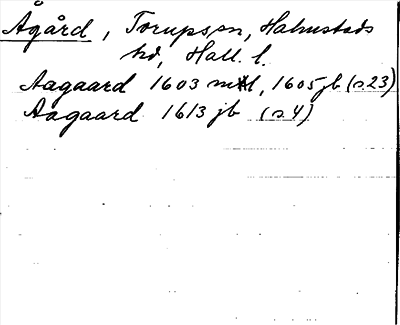 Ågård, Torups sn, Halmstads
hd, Hall. l.
Aagaard 1603 mtl, 1605 jb (s.23)
Aagaard 1613 jb (s 4)